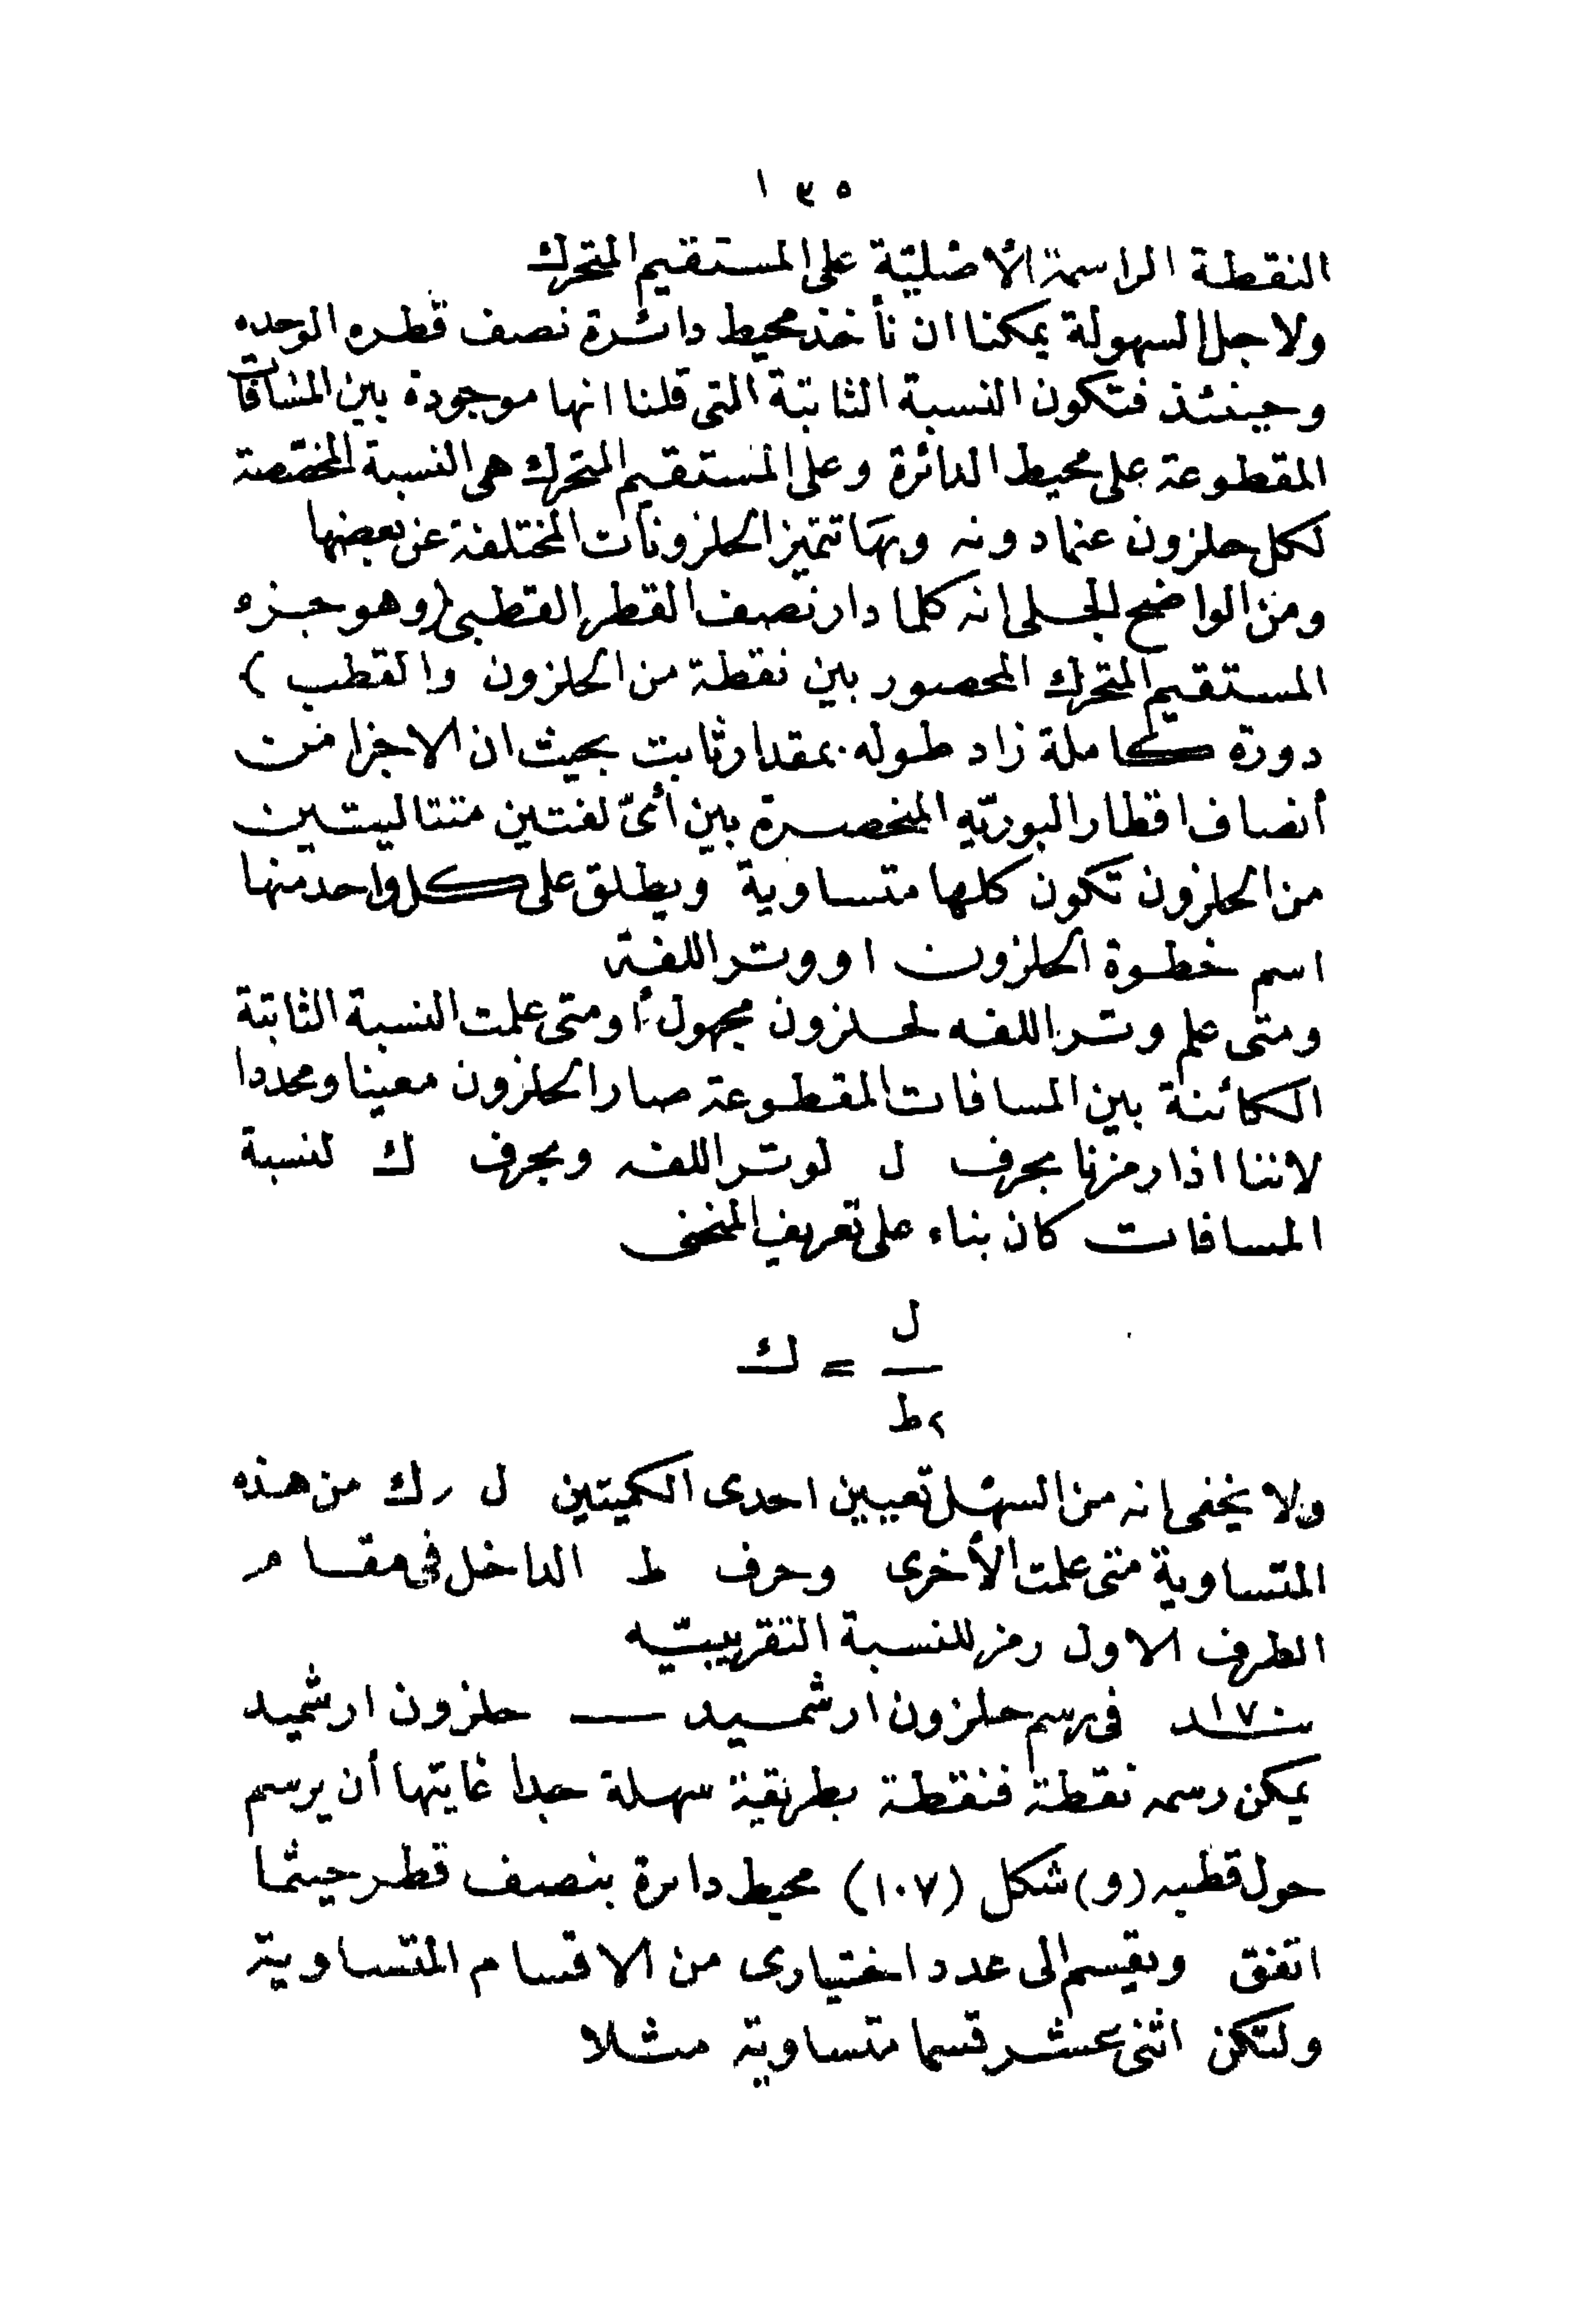 ١٣٥
النقطة الراسمة الأصلية على المستقيم المتحرك
ولاجل السهولة يمكننا ان نأخذ محيط دائرة نصف قطره الوحده
وحينئذ فتكون النسبة الثابتة التى قلنا انها موجودة بين المسافات
المقطوعة على محيط الدائرة وعلى المستقيم المتحرك هى النسبة المختصة
لكل حلزون عمادونه وبها تتميز الحلزونات المختلفة عن بعضها
ومن الواضح الجلى انه كلما دار نصف القطر القطبى (وهو جزء
المستقيم المتحرك المحصور بين نقطة من الحلزون والقطب )
دورة كاملة زاد طوله بمقدار ثابت بحيث ان الاجزا من
أنصاف اقطار البوريّه المنحصرة بين أىّ لفتين متتاليتين
من الحلزون تكون كلها متساوية ويطلق على كل واحد منها
اسم خطوة الحلزون او وتر اللفة
ومتى علم وتر اللفه لحلزون مجهول أو متى علمت النسبة الثابتة
الكائنة بين المسافات المقطوعة صار الحلزون معينا ومحددا
لاننا اذا رمزنا بحرف ل لوتر اللفه وبحرف ك لنسبة
المسافات كان بناء على تعريف المنحنى
ل
— = ك
٢ط
ولا يخفى انه من السهل تعيين احدى الكميتين ل ر ك من هذه
المتساوية متى علمت الأخرى وحرف ط الداخل فى مقام
الطرف الاول رمز للنسبة التقريبيّه
١٧٠ فى رسم حلزون ارشميد — حلزون ارشميد
يمكن رسمه نقطة فنقطة بطريقة سهلة جدا غايتها أن يرسم
حول قطبه (و) شكل (١٠٧) محيط دائرة بنصف قطر حيثما
اتفق ويقسم الى عدد اختيارى من الاقسام المتساوية
ولتكن اثنى عشر قسما متساوية مثلا